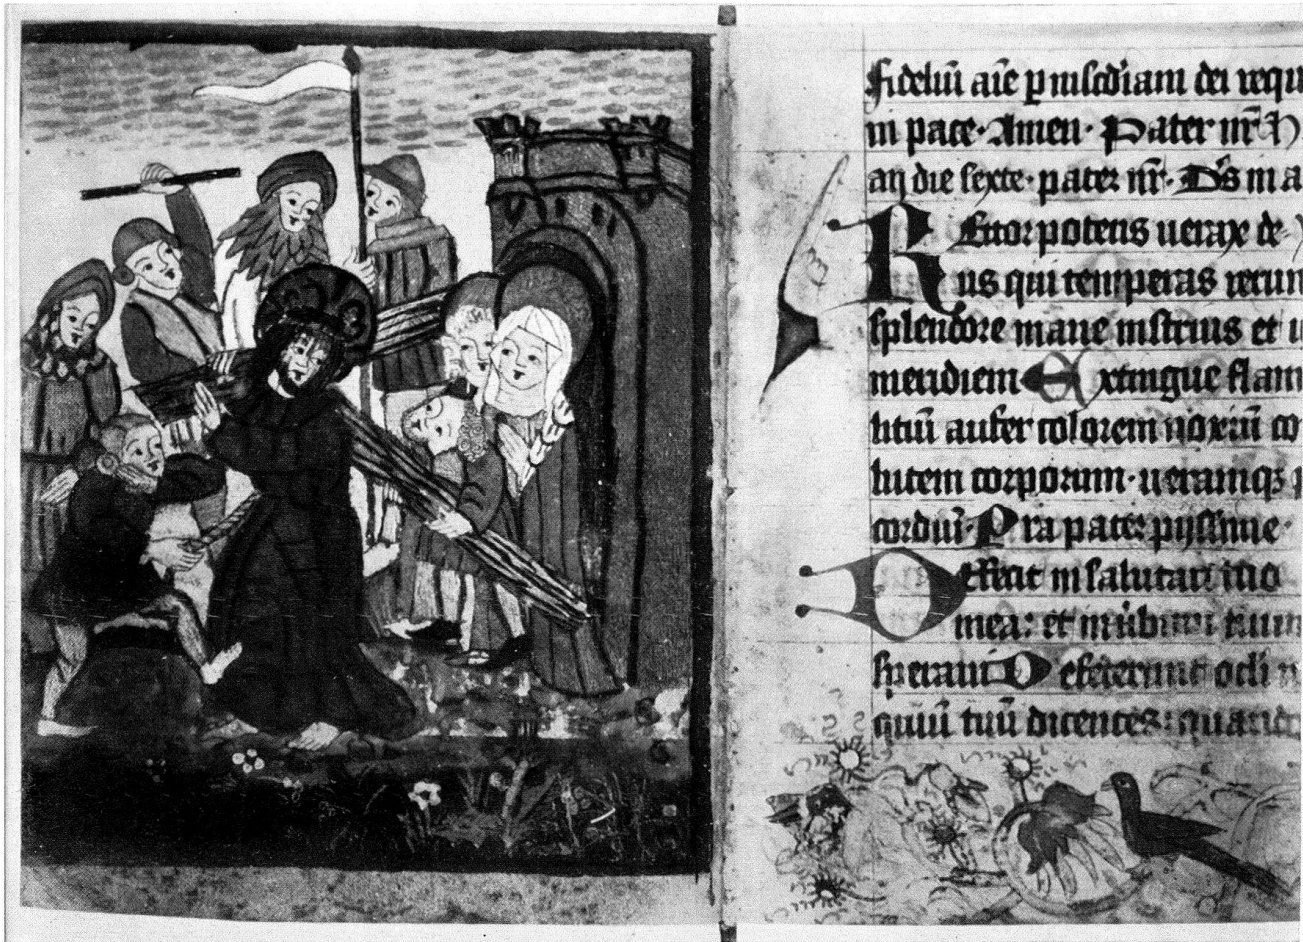 fideliū aīe p misc̄diam dei requi
in pace · Amen · Pater nr̄
an die sexte · pater nr̄ · D̄s in a
Rector potens uerax de
us qui temperas rerum
splendore mane instruis et
meridiem Extingue flam
litiū aufer colorem noxiū co
lutem corporum · ueramqꝫ p
cordiū · Pra pater pijssime ·
Defecit in salutari tuo
mea : et in uibum tuum
speraui Defecerunt oc̄li
quiū tuū dicentes : quando